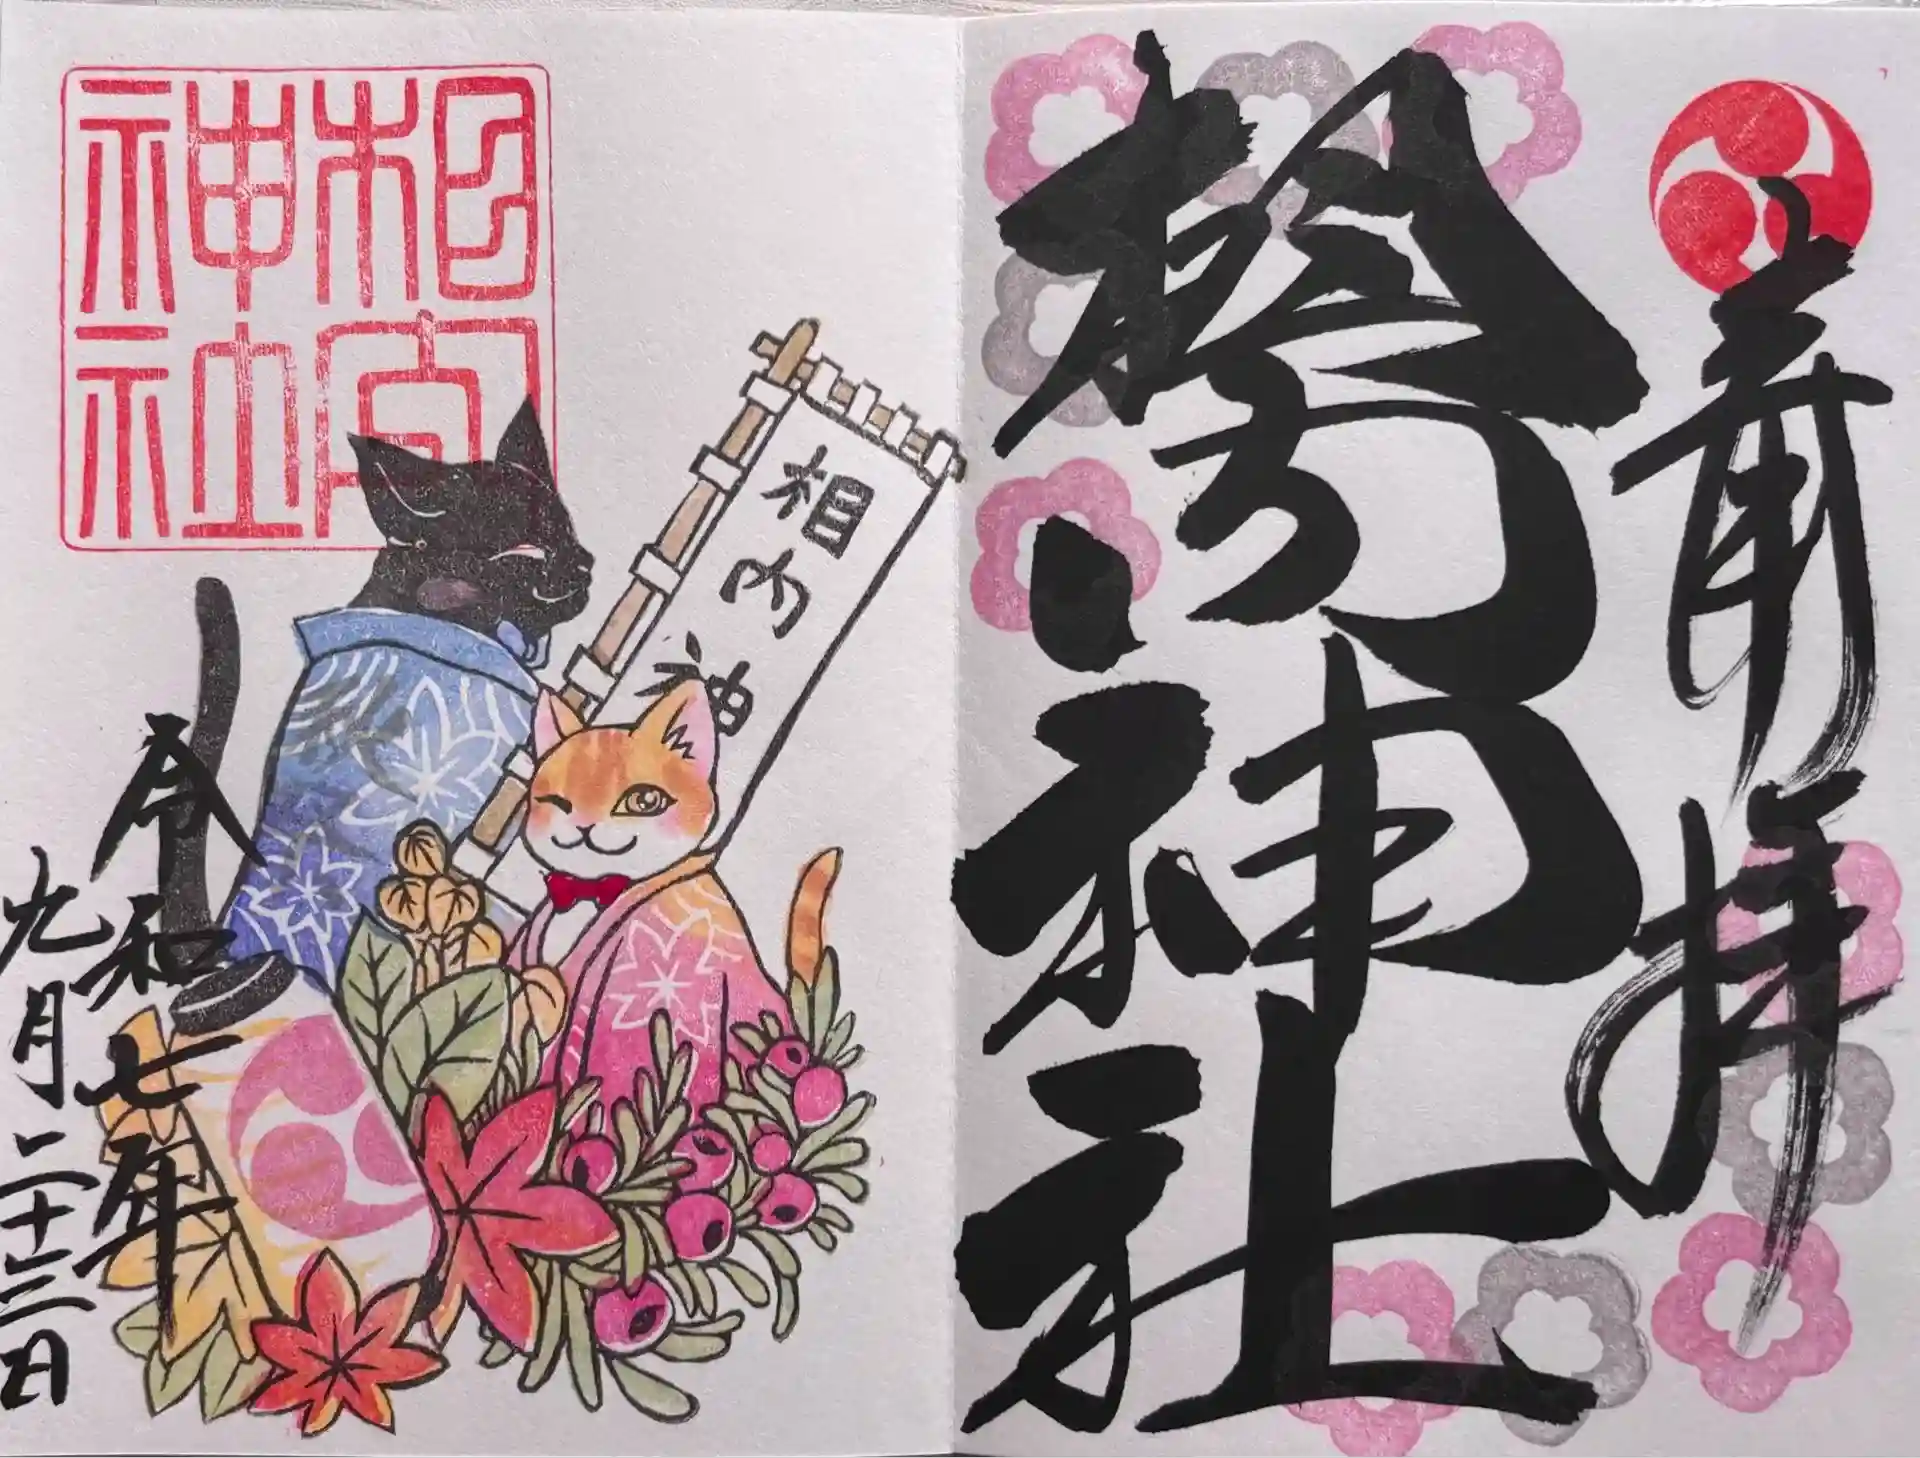 奉拝
相内神社
相内神社
相内神
令和七年
九月二十三日